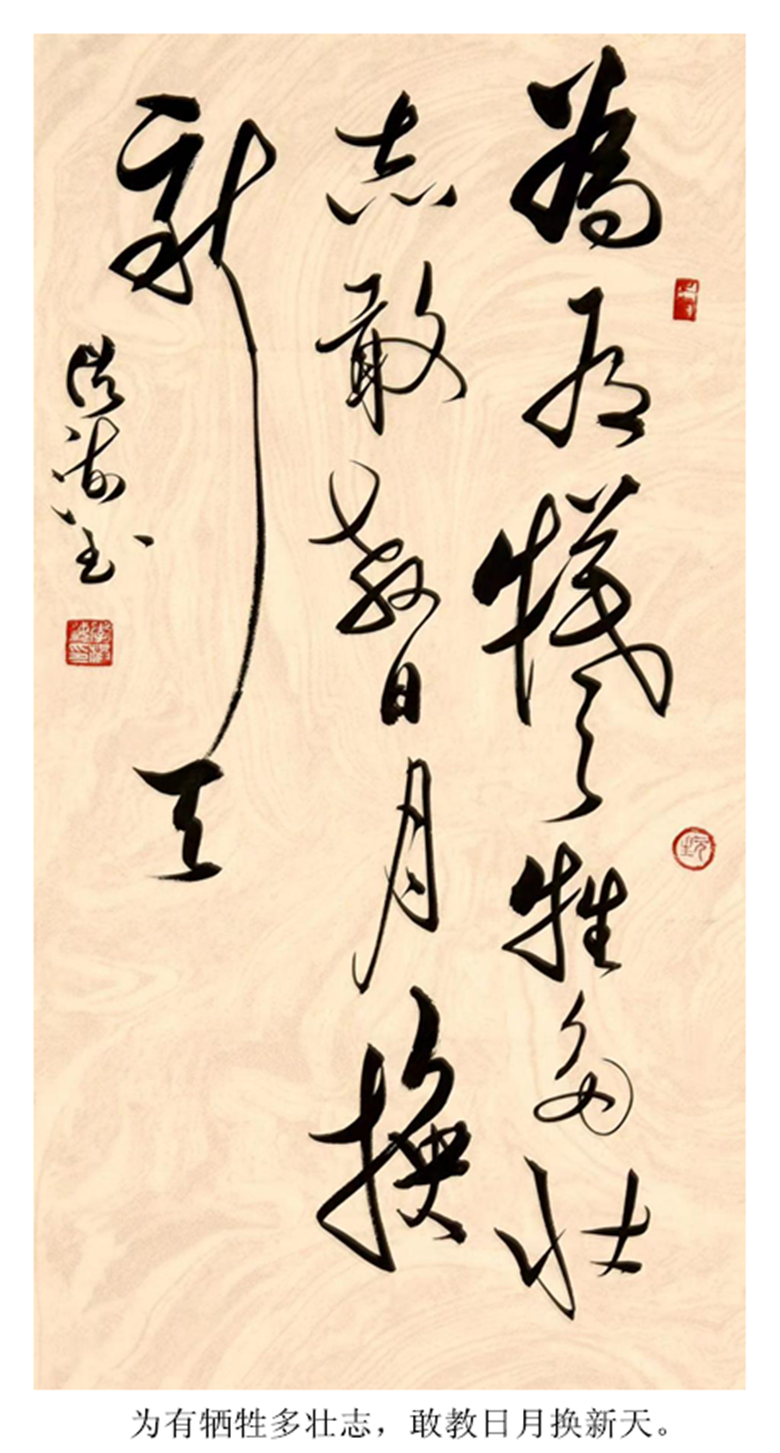 為有犧牲多壮
志敢教日月換
新天
为有牺牲多壮志，敢教日月换新天。